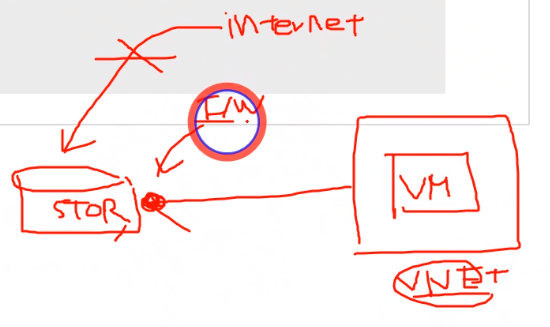 internet
F/W
STOR
VM
VNET